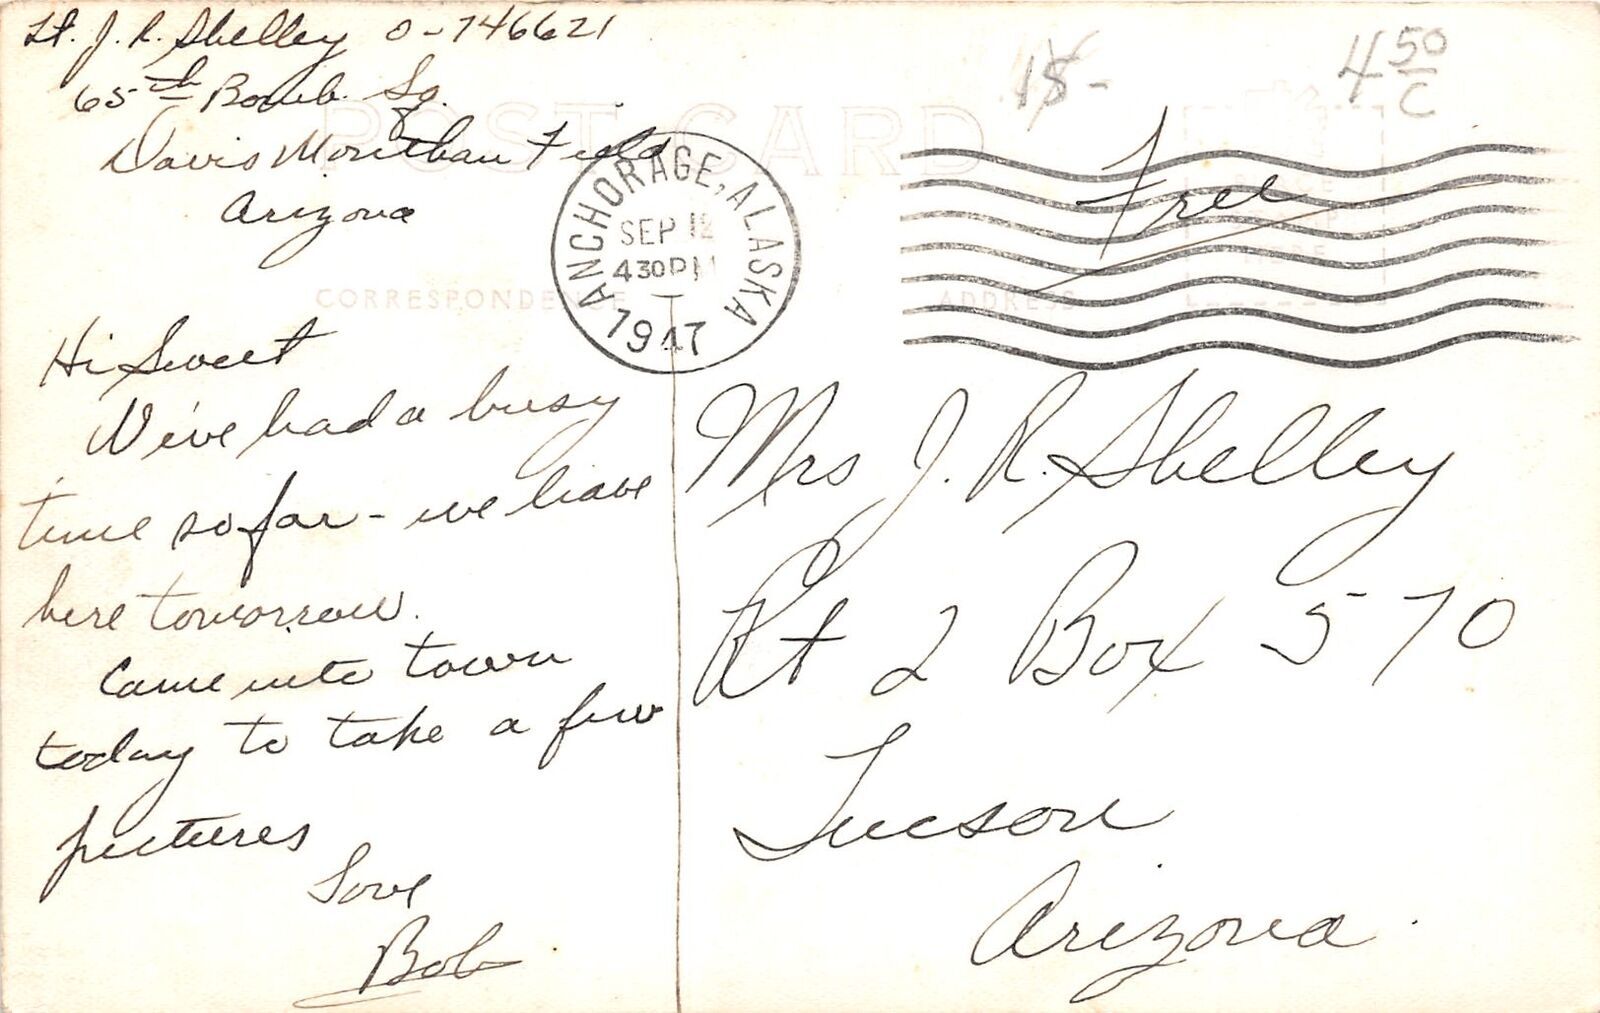 Lt. J. R. Shelley O-746621
65th Bomb. Sq.
Davis Monthan Field
Arizona
15-
4 50
C
POST CARD
Free
PLACE
STAMP
HERE
ANCHORAGE, ALASKA
SEP 12
430PM
1947
CORRESPONDENCE
ADDRESS
Hi Sweet
We've had a busy
time so far - we leave
here tomorrow.
Came into town
today to take a few
pictures
Love
Bob
Mrs J. R. Shelley
Rt 2 Box 570
Tucson
Arizona.